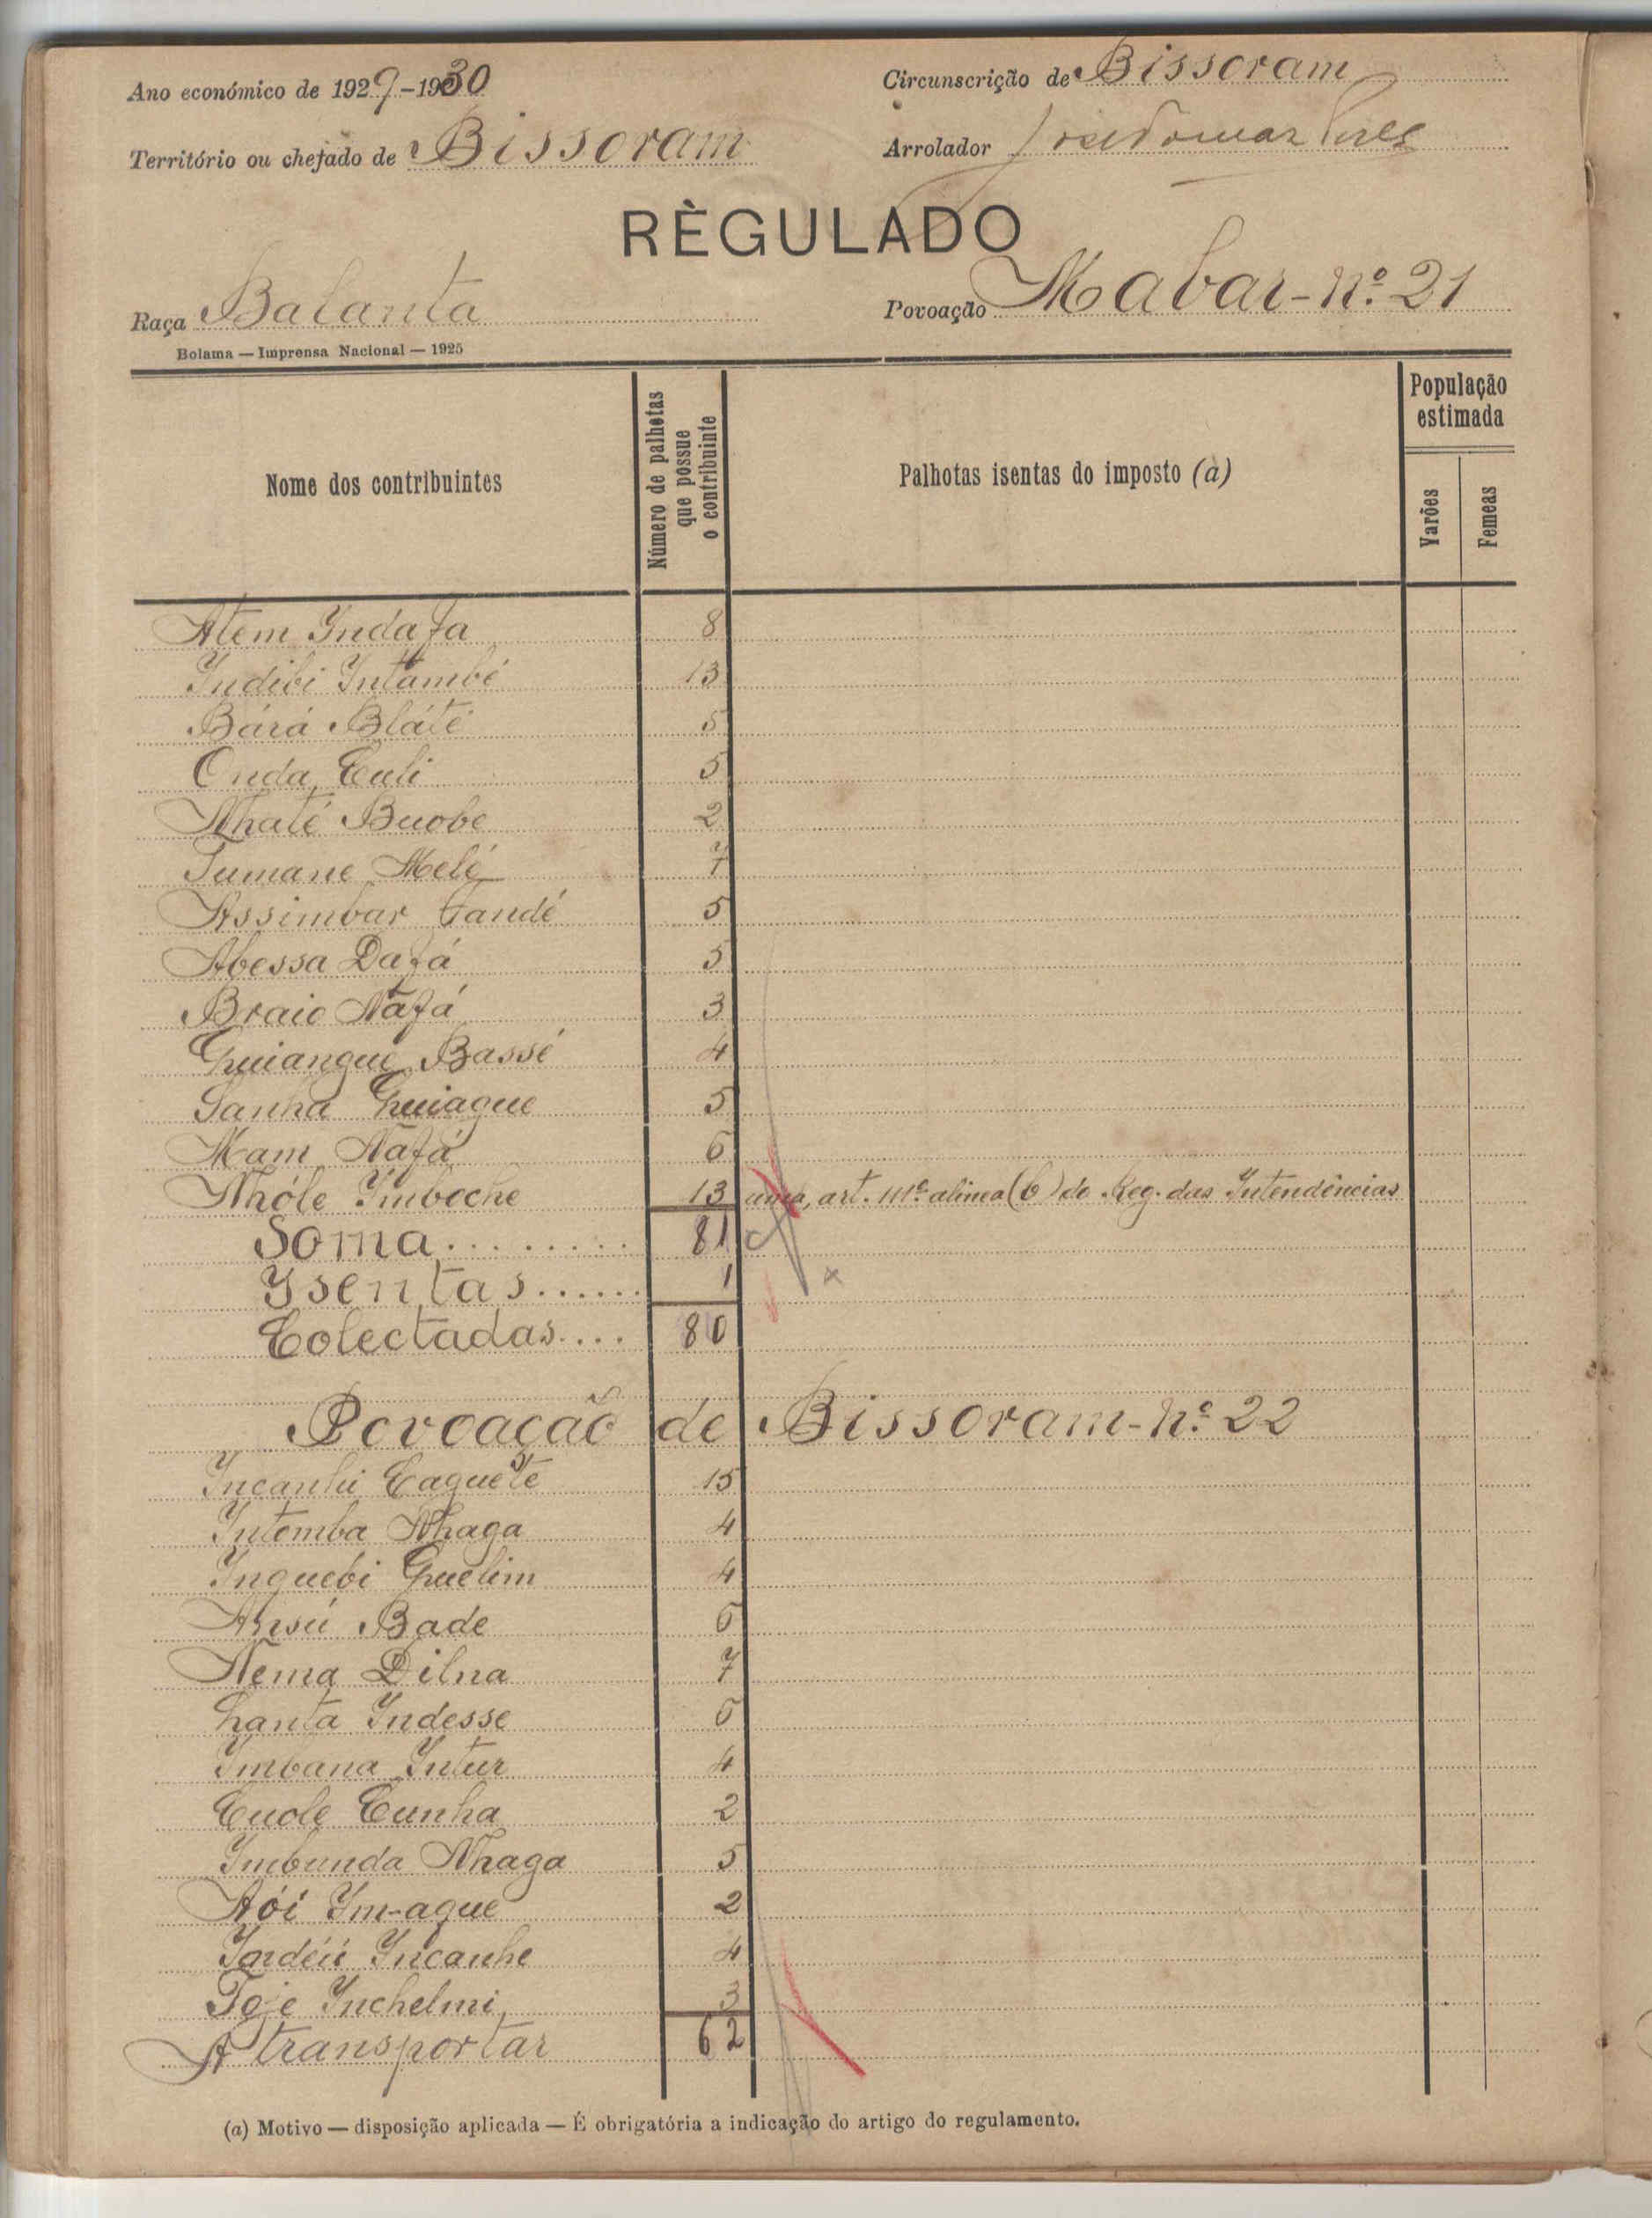 Ano económico de 1929-1930
Circunscrição de Bissoram
Território ou chefado de Bissoram
Arrolador José Pires
RÈGULADO
Raça Balanta
Povoação Mabar-nº. 21
Bolama — Imprensa Nacional — 1925
Nome dos contribuintes
Número de palhotas
que possue
o contribuinte
Palhotas isentas do imposto (a)
População
estimada
Varões
Femeas
Atem Yndafa 8
Yndibi Yntambé 13
Bárá Bláté 5
Onda Culi 5
Nhaté Buobe 2
Tumane Melé 7
Assimbar Tandé 5
Abessa Dafá 5
Braio Nafá 3
Guiangue Bassé 4
Sanha Guiague 5
Mam Nafá 6
Nhóle Ymboche 13 uma, art. 111º alinea (b) do Reg. das Intendências
Soma........ 81
Ysentas...... 1
Colectadas.... 80
Povoação de Bissoram-nº. 22
Yncanhi Caguete 15
Yntomba Nhaga 4
Ynguebi Guelim 4
Ansú Bade 6
Nema Dilna 7
Lanta Yndesse 6
Ymbana Yntur 4
Cuole Cunha 2
Ymbunda Nhaga 5
Aói Ym-ague 2
Yncanhe 4
Toje Ynchelmi 3
A transportar 62
(a) Motivo — disposição aplicada — É obrigatória a indicação do artigo do regulamento.